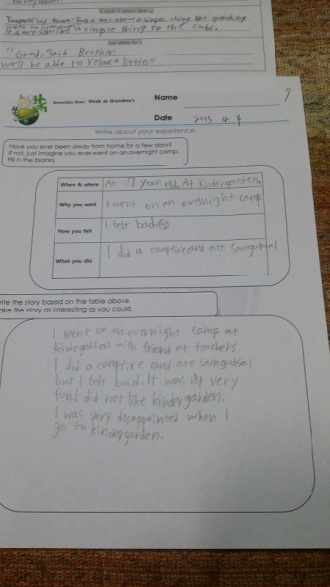 "Good," said Brother.
we'll be able to relax a little."
9
Week at Grandma's
Name
Date 2015 4. 9
Write about your experience.
Have you ever been away from home for a few days?
If not, just imagine you ever went on an overnight camp.
Fill in the blanks.
When & where At 7 years old, At kindergarden
Why you went I went on an overnight camp
How you felt I felt bad
What you did I did a campfire and ate samgubsal
rite the story based on the table above.
ake the story as interesting as you could.
I went on an overnight camp at
kindegarden with friend at teachers
I did a campfire and ate samgubsal
but I felt bad. It was very
fun I did not like kindergarden.
I was very disappointed when I
go to kindergarden.